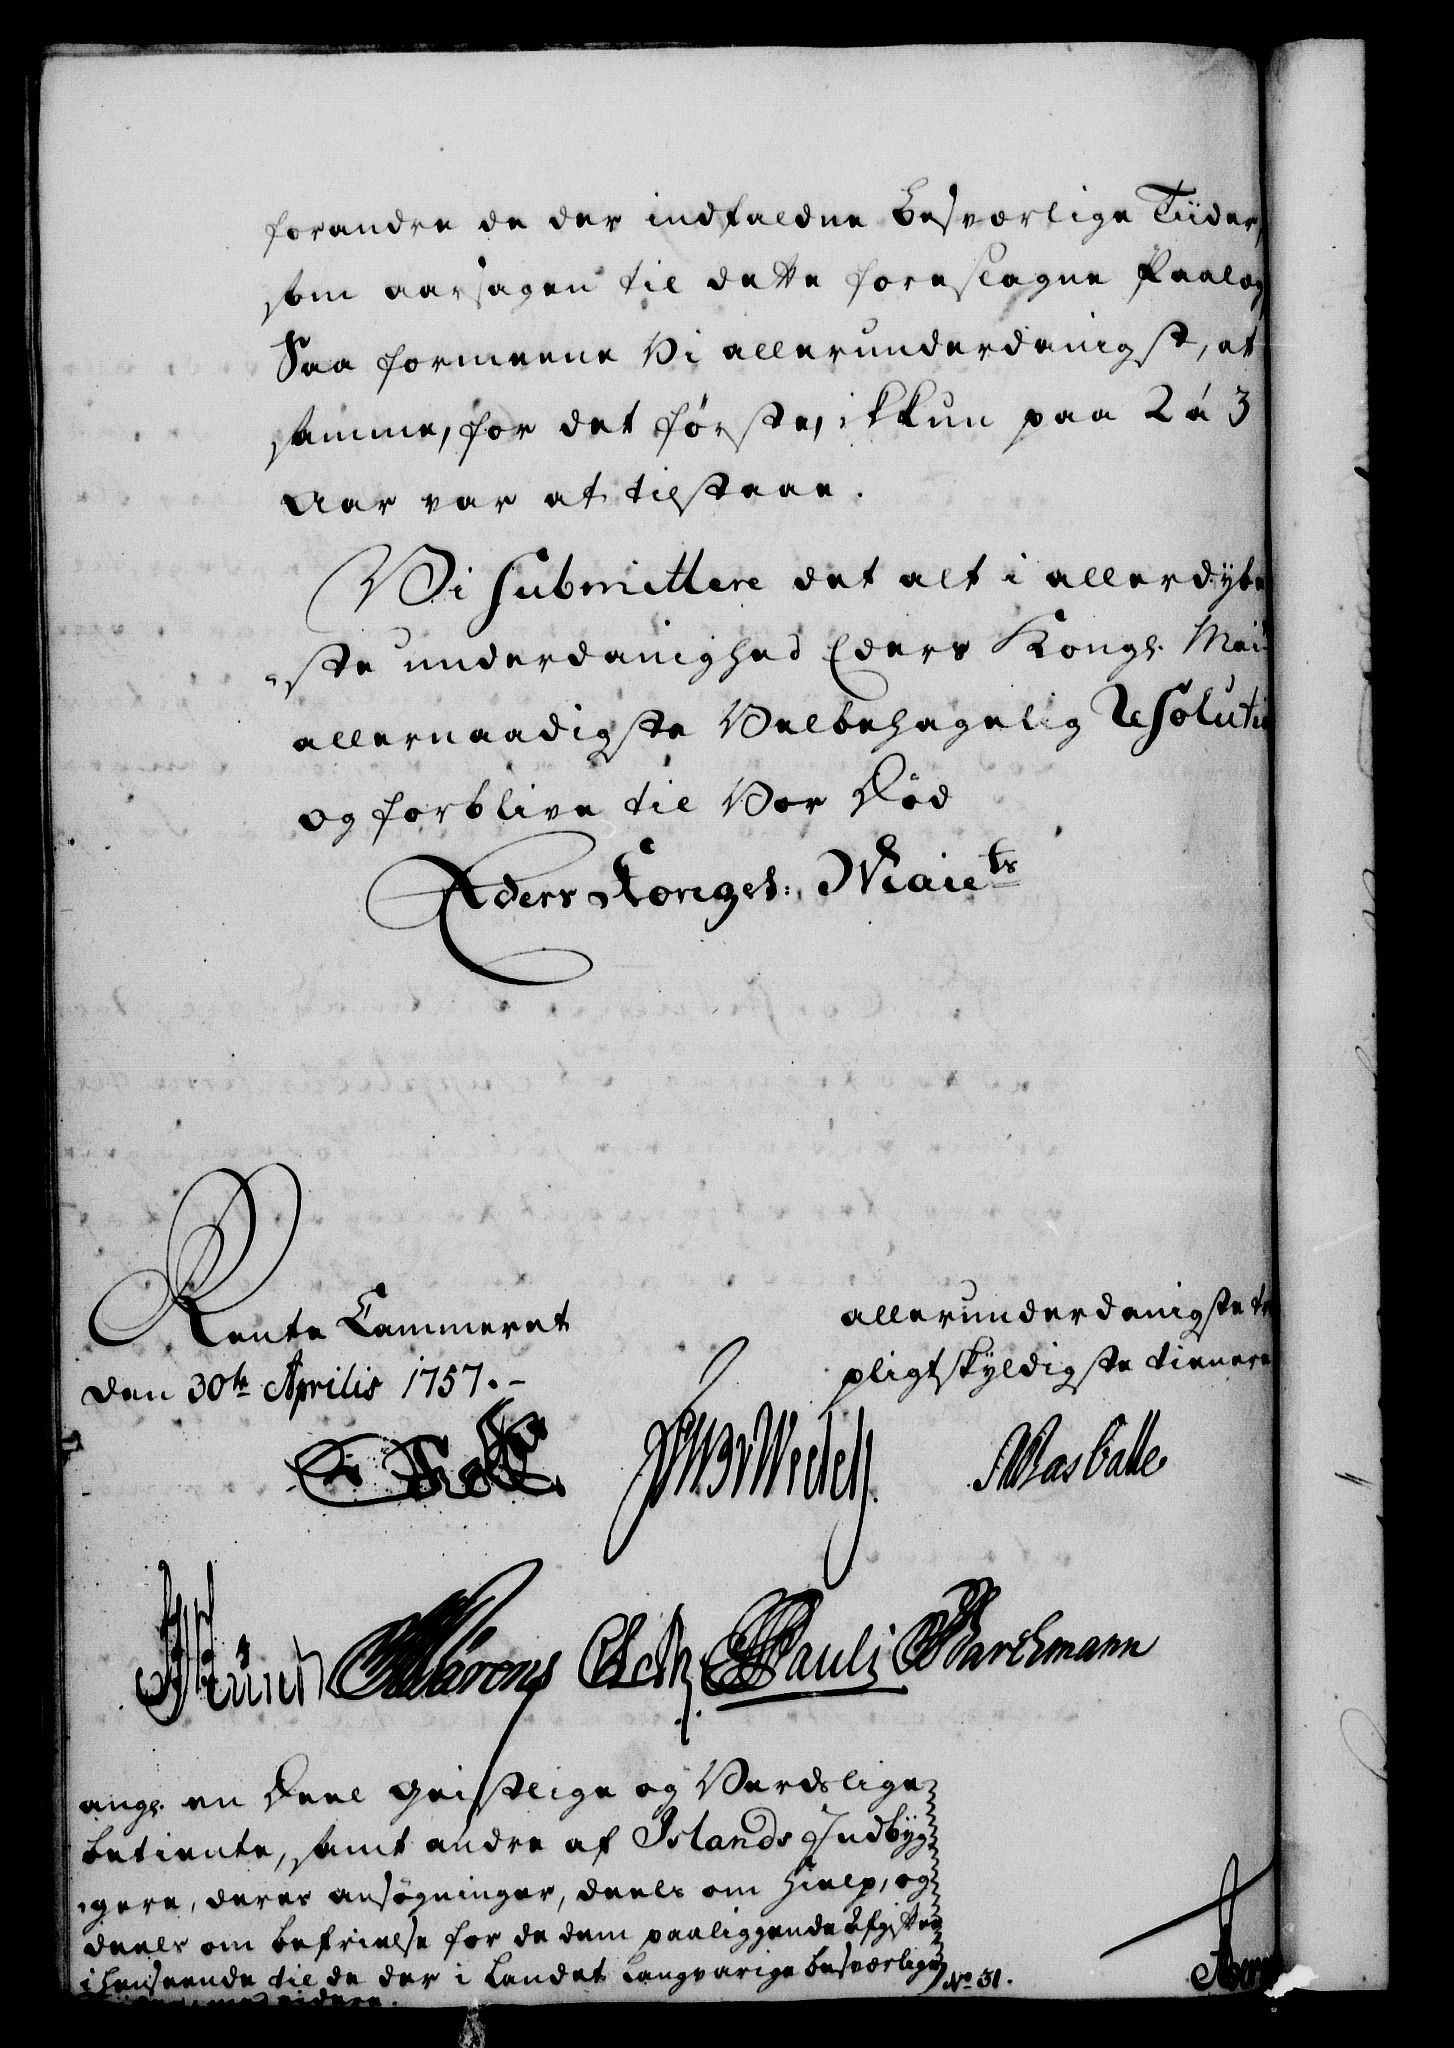 forandre de der indfaldne besværlige Tiider,
som aarsagen til dette foreslagne Paalæg,
Saa formeene Vi allerunderdanigst, at
samme, for det første, ikkun paa 2 á 3
Aar var at tilstaae.
Vi submittere det alt i allerdybe
ste underdanighed Eders Kongl. Mai
allernaadigste Velbehagelig Resolutio
og forblive til Vor Død
Eders Kongel: Maiets
Rente Cammeret
den 30te Aprilis 1757.-
allerunderdanigste tr
pligtskyldigste tienere
Wedell
Pauli Barchmann
angl. en Deel Geistlige og Verdslige
betiente, samt andre af Islands Indbyg
gere, deres ansøgninger, deels om Hielp, og
deels om befrielse for de dem paaliggende Afgifter
i henseende til de der i Landet langvarige besværlige
No 31.